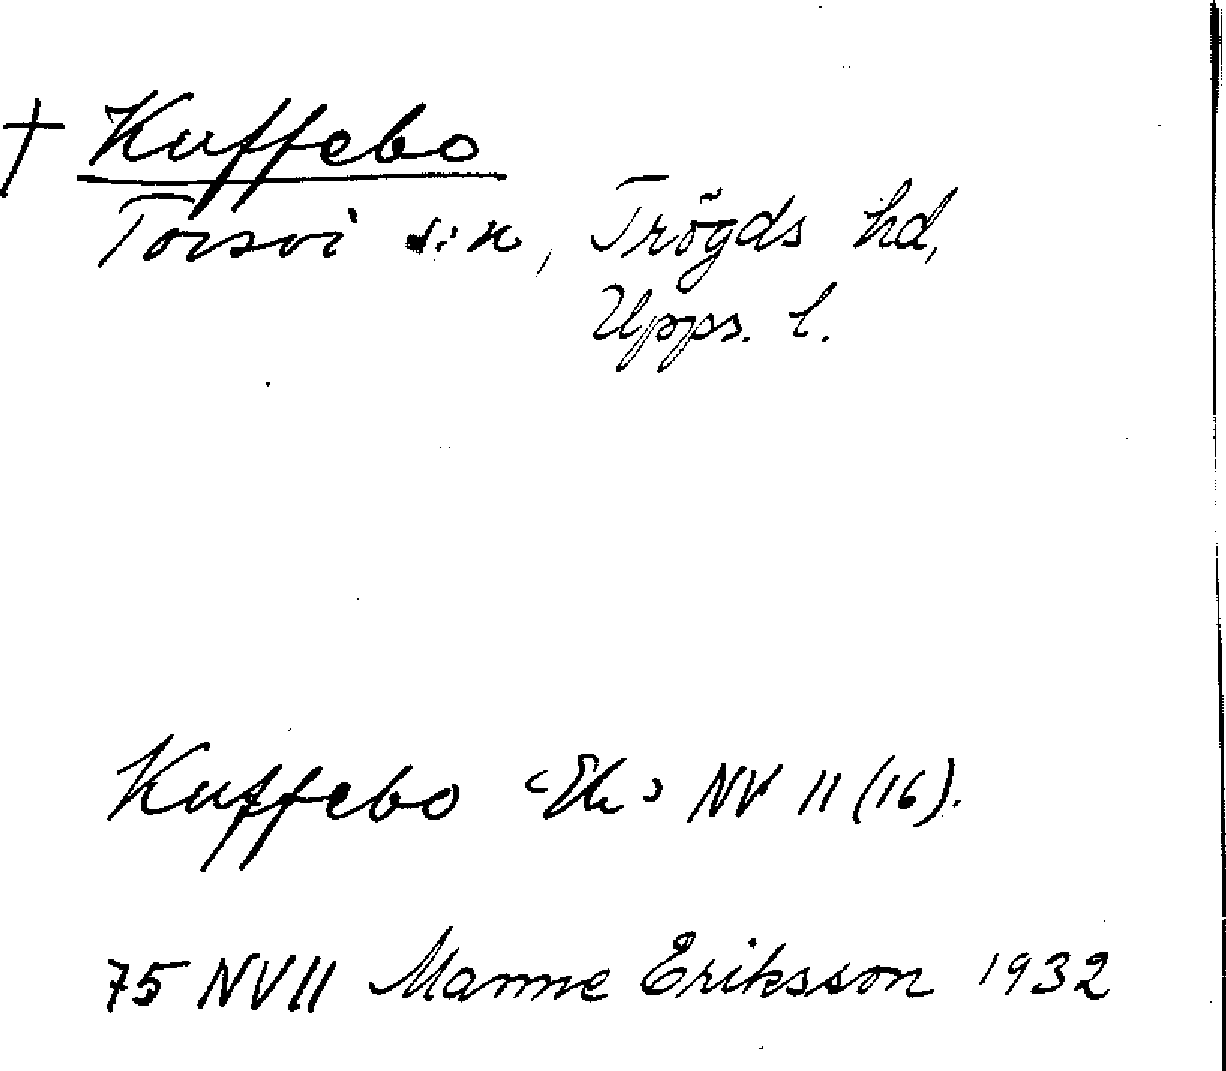 † Kuffebo
Torsvi s:n, Trögds hd,
Upps. l.
Kuffebo <Ek> NV 11 (16).
75 NV11 Manne Eriksson 1932